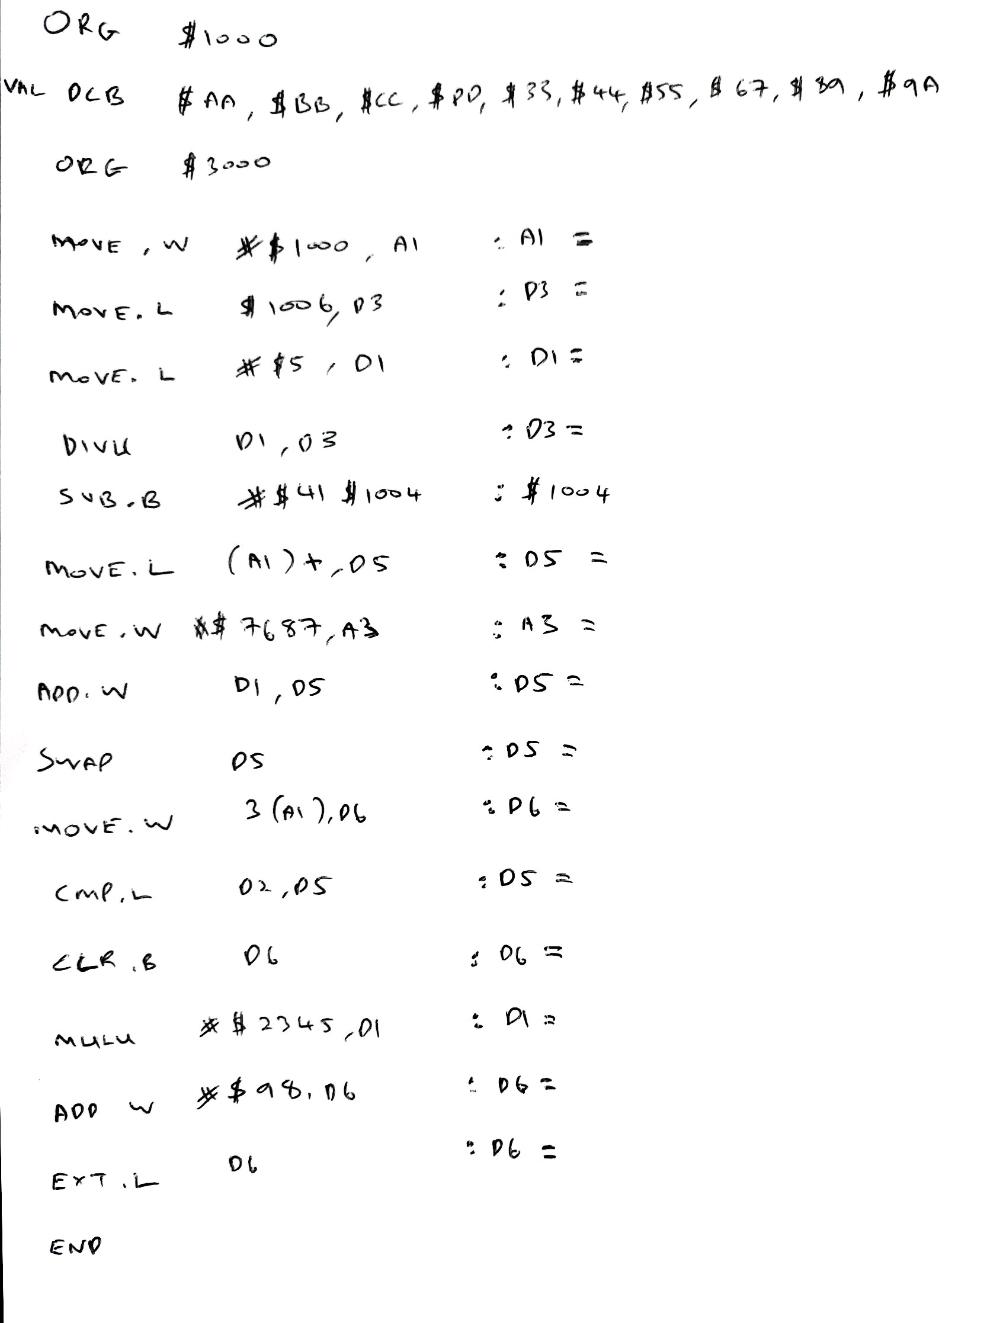 ORG $1000
VAL DCB $AA, $BB, $CC, $DD, $33, $44, $55, $67, $89, $9A
ORG $3000
MOVE.W #$1000, A1 : A1 =
MOVE.L $1006, D3 : D3 =
MOVE.L #$5, D1 : D1 =
DIVU D1, D3 : D3 =
SUB.B #$41 $1004 : $1004
MOVE.L (A1)+, D5 : D5 =
MOVE.W #$7687, A3 : A3 =
ADD.W D1, D5 : D5 =
SWAP D5 : D5 =
MOVE.W 3(A1), D6 : D6 =
CMP.L D2, D5 : D5 =
CLR.B D6 : D6 =
MULU #$2345, D1 : D1 =
ADD W #$98, D6 : D6 =
EXT.L D6 : D6 =
END